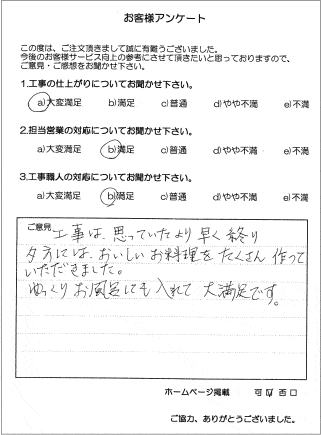 お客様アンケート
この度は、ご注文頂きまして誠に有難うございました。
今後のお客様サービス向上の参考にさせて頂きたいと思っておりますので、
ご意見・ご感想をお聞かせ下さい。
1.工事の仕上がりについてお聞かせ下さい。
a)大変満足 b)満足 c)普通 d)やや不満 e)不満
2.担当営業の対応についてお聞かせ下さい。
a)大変満足 b)満足 c)普通 d)やや不満 e)不満
3.工事職人の対応についてお聞かせ下さい。
a)大変満足 b)満足 c)普通 d)やや不満 e)不満
ご意見
工事は、思っていたより早く終り
夕方には、おいしいお料理をたくさん作って
いただきました。
ゆっくりお風呂にも入れて大満足です。
ホームページ掲載 可 否
ご協力、ありがとうございました。